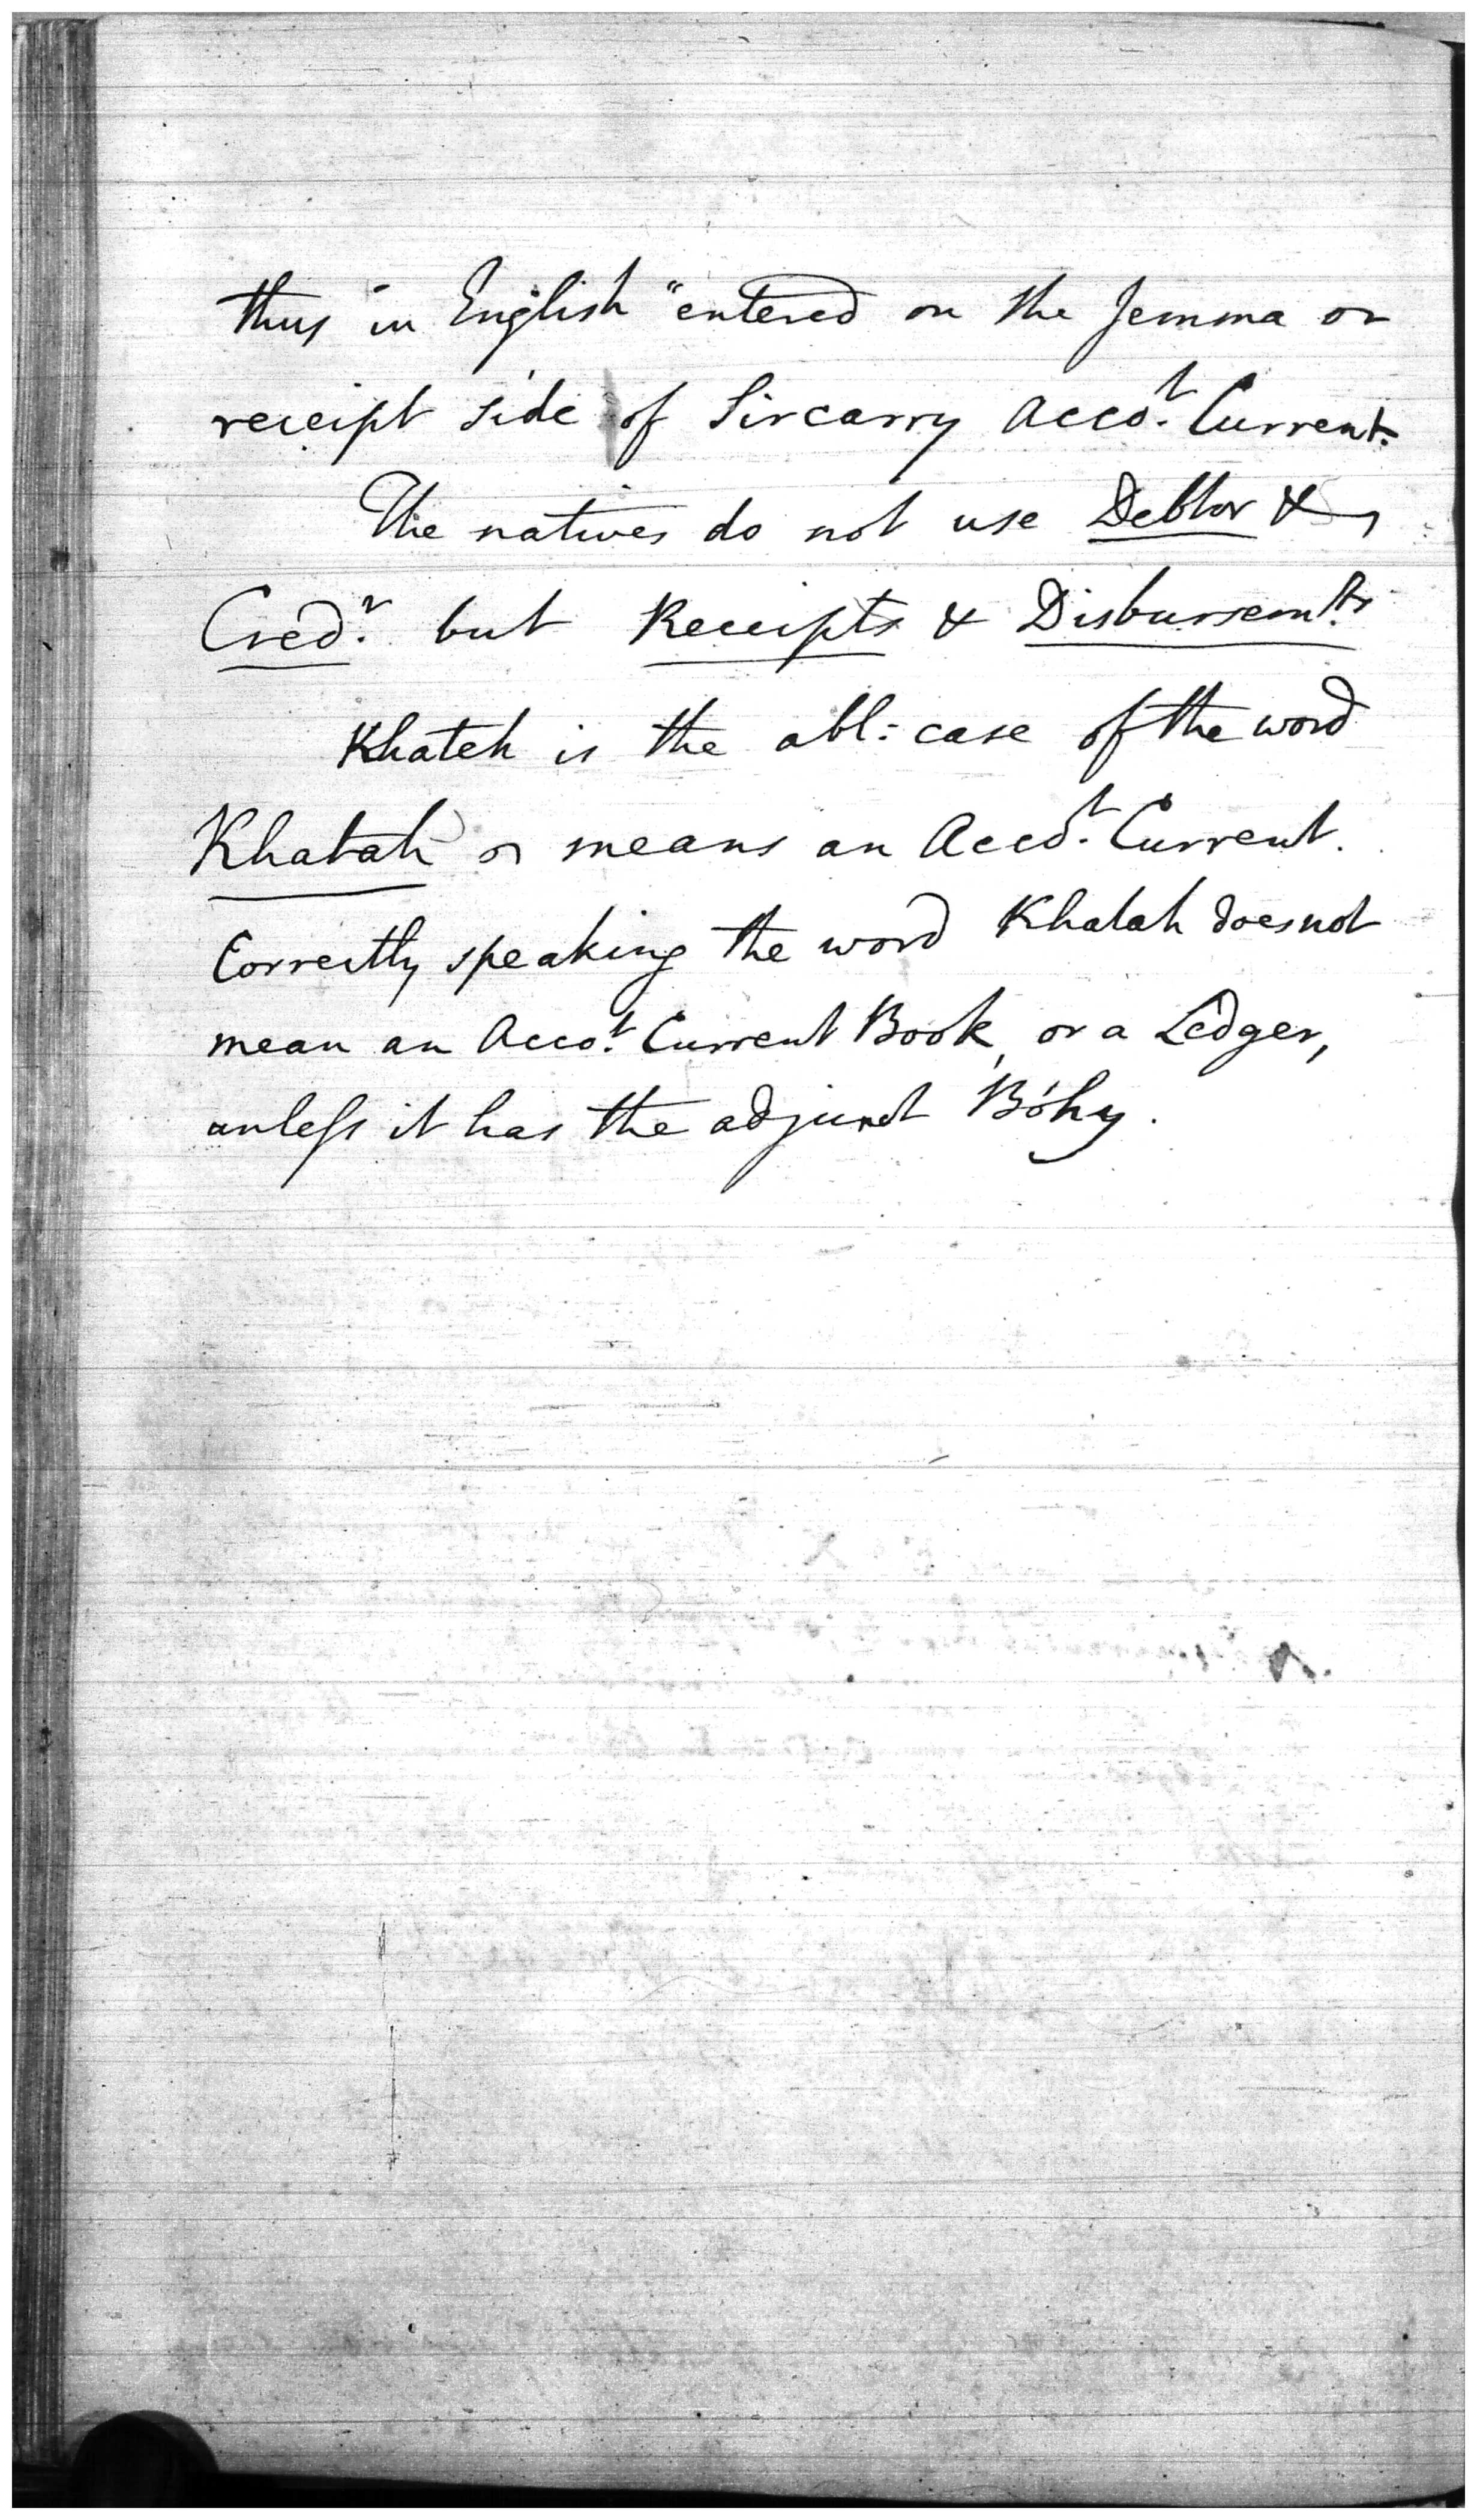 thus in English "entered on the Jemma or
receipt side of Sircarry Acco.t Current.
The natives do not use Debtor &
Cred.r but Receipts & Disbursem.ts
Khateh is the abl: case of the word
Khatah & means an Acco.t Current.
Correctly speaking the word Khatah does not
mean an Acco.t Current Book, or a Ledger,
unless it has the adjunct Bóhy.